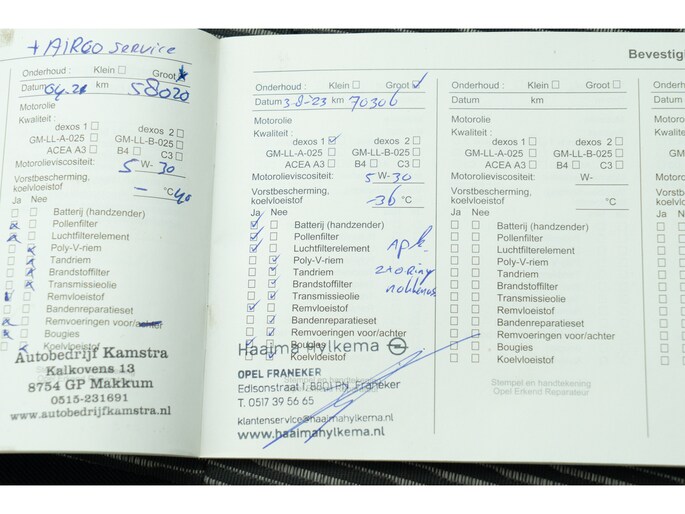 + AIRCO service
Onderhoud : Klein Groot
Datum 04-21 km 58020
Motorolie
Kwaliteit :
dexos 1 dexos 2
GM-LL-A-025 GM-LL-B-025
ACEA A3 B4 C3
Motorolieviscositeit: 5 W- 30
Vorstbescherming,
koelvloeistof - °C 40
Ja Nee
Batterij (handzender)
Pollenfilter
Luchtfilterelement
Poly-V-riem
Tandriem
Brandstoffilter
Transmissieolie
Remvloeistof
Bandenreparatieset
Remvoeringen voor/achter
Bougies
Koelvloeistof
Autobedrijf Kamstra
Kalkovens 13
8754 GP Makkum
0515-231691
www.autobedrijfkamstra.nl
Onderhoud: Klein Groot
Datum 3-8-23 km 70306
Motorolie
Kwaliteit:
dexos 1 dexos 2
GM-LL-A-025 GM-LL-B-025
ACEA A3 B4 C3
Motorolieviscositeit: 5 W- 30
Vorstbescherming,
koelvloeistof -36 °C
Ja Nee
Batterij (handzender)
Pollenfilter
Luchtfilterelement
Poly-V-riem
Tandriem
Brandstoffilter
Transmissieolie
Remvloeistof
Bandenreparatieset
Remvoeringen voor/achter
Bougies
Koelvloeistof
apk
Haaima Hylkema
OPEL FRANEKER
Edisonstraat 1, Franeker
T. 0517 39 56 65
klantenservice@haaimahylkema.nl
www.haaimahylkema.nl
Bevestig
Onderhoud : Klein Groot
Datum km
Motorolie
Kwaliteit :
dexos 1 dexos 2
GM-LL-A-025 GM-LL-B-025
ACEA A3 B4 C3
Motorolieviscositeit: W-
Vorstbescherming,
koelvloeistof °C
Ja Nee
Batterij (handzender)
Pollenfilter
Luchtfilterelement
Poly-V-riem
Tandriem
Brandstoffilter
Transmissieolie
Remvloeistof
Bandenreparatieset
Remvoeringen voor/achter
Bougies
Koelvloeistof
Stempel en handtekening
Opel Erkend Reparateur
Onde
Datum
Motor
Kwalit
GM
Motor
Vorst
koelv
Ja N